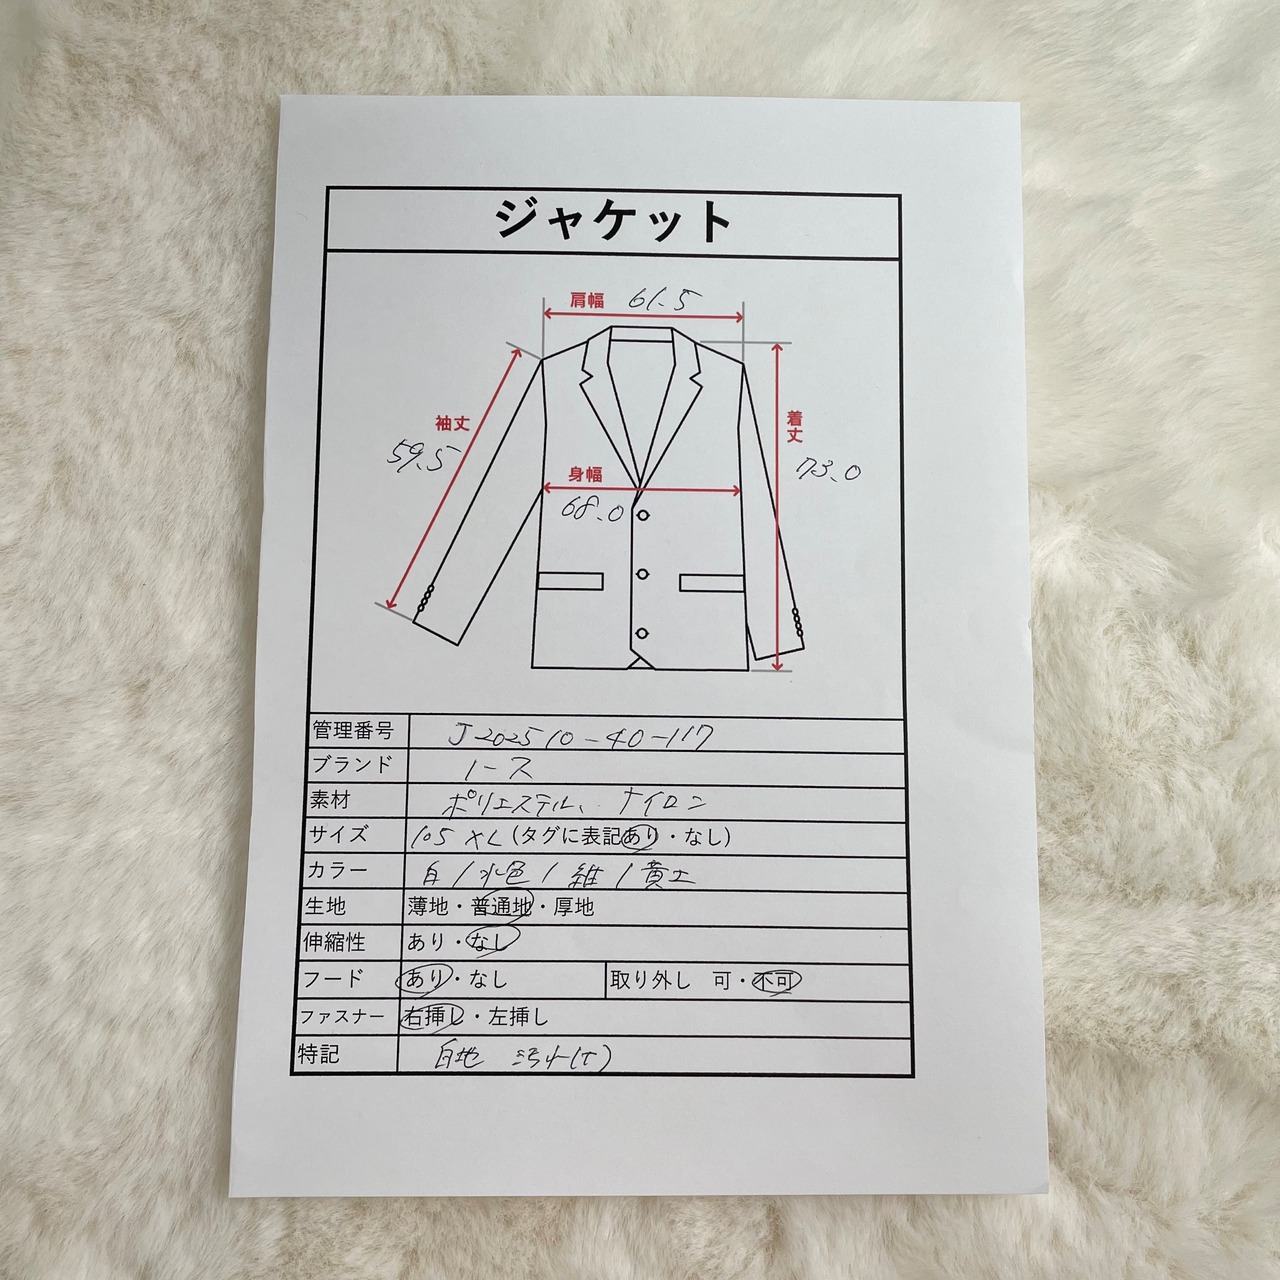 ジャケット
肩幅 61.5
袖丈
59.5
着丈
73.0
身幅
68.0
管理番号 J202510-40-117
ブランド ノース
素材 ポリエステル、ナイロン
サイズ 105 XL (タグに表記あり・なし)
カラー 白 / 水色 / 紺 / 黄土
生地 薄地・普通地・厚地
伸縮性 あり・なし
フード あり・なし 取り外し 可・不可
ファスナー 右挿し・左挿し
特記 白地 汚れ